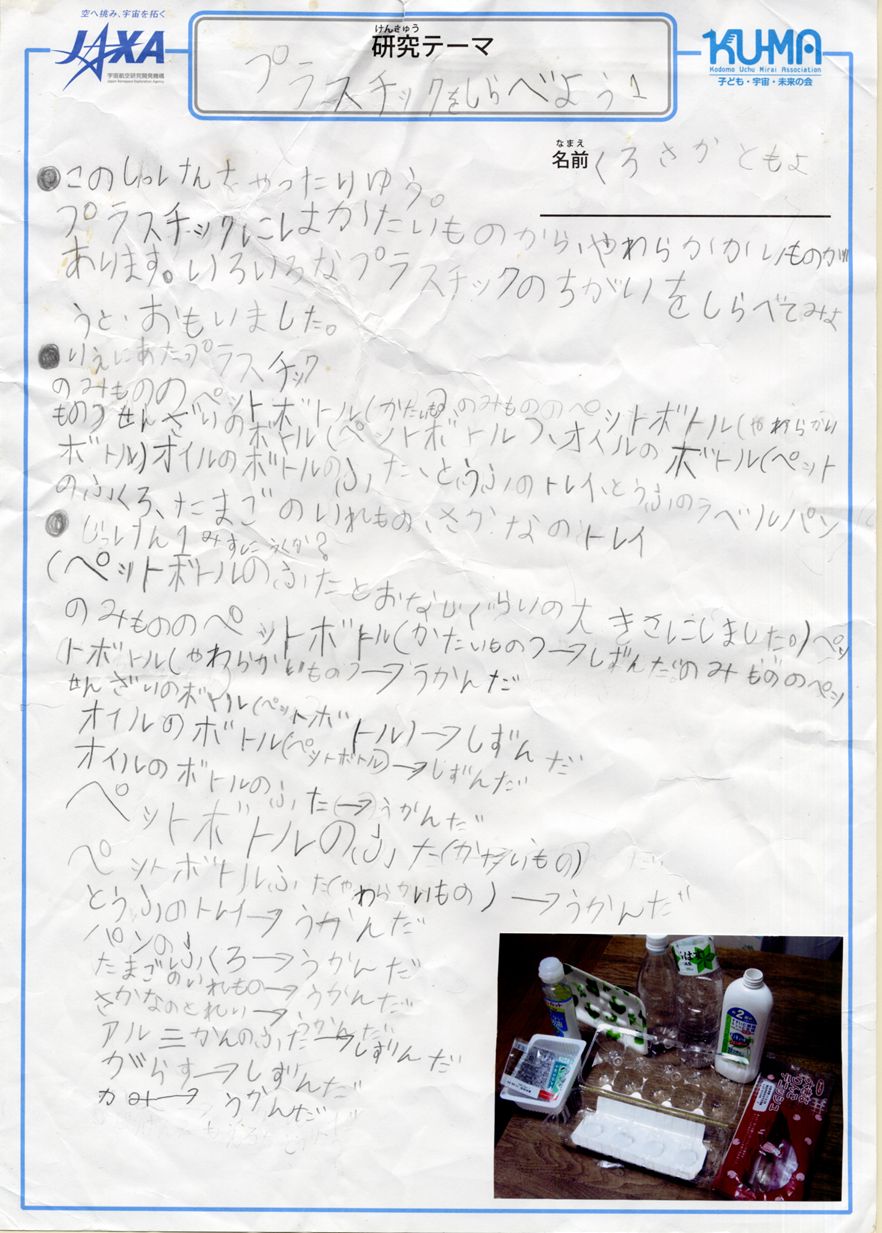 空へ挑み、宇宙を拓く
JAXA
宇宙航空研究開発機構
Japan Aerospace Exploration Agency
けんきゅう
研究テーマ
プラスチックをしらべよう1
KU-MA
Kodomo Uchu Mirai Association
子ども・宇宙・未来の会
なまえ
名前 くろさか ともよ
●このじっけんをやったりゆう。
プラスチックにはかたいものから、やわらかいものが
あります。いろいろなプラスチックのちがいをしらべてみよ
うと、おもいました。
●いえにあたプラスチック
のみもののペットボトル(かたいもの)、のみもののペットボトル(やわらかい
もの)せんざいのボトル(ペットボトル)、オイルのボトル(ペット
ボトル)オイルのボトルのふた、とうふのトレイ、とうふのラベルパン
のふくろ、たまごのいれもの、さかなのトレイ
●じっけん1みずにうくか?
(ペットボトルのふたとおなじぐらいの大きさにしました。)
のみもののペットボトル(かたいもの)→しずんだ のみもののペッ
トボトル(やわらかいもの)→うかんだ
せんざいのボトル(ペットボトル)→しずんだ
オイルのボトル(ペットボトル)→しずんだ
オイルのボトルのふた→うかんだ
ペットボトルのふた(かたいもの)
ペットボトルふた(やわらかいもの)→うかんだ
とうふのトレイ→うかんだ
パンのふくろ→うかんだ
たまごのいれもの→うかんだ
さかなのとれい→うかんだ
アルミかんのふた→しずんだ
がらす→しずんだ
カみ→うかんだ